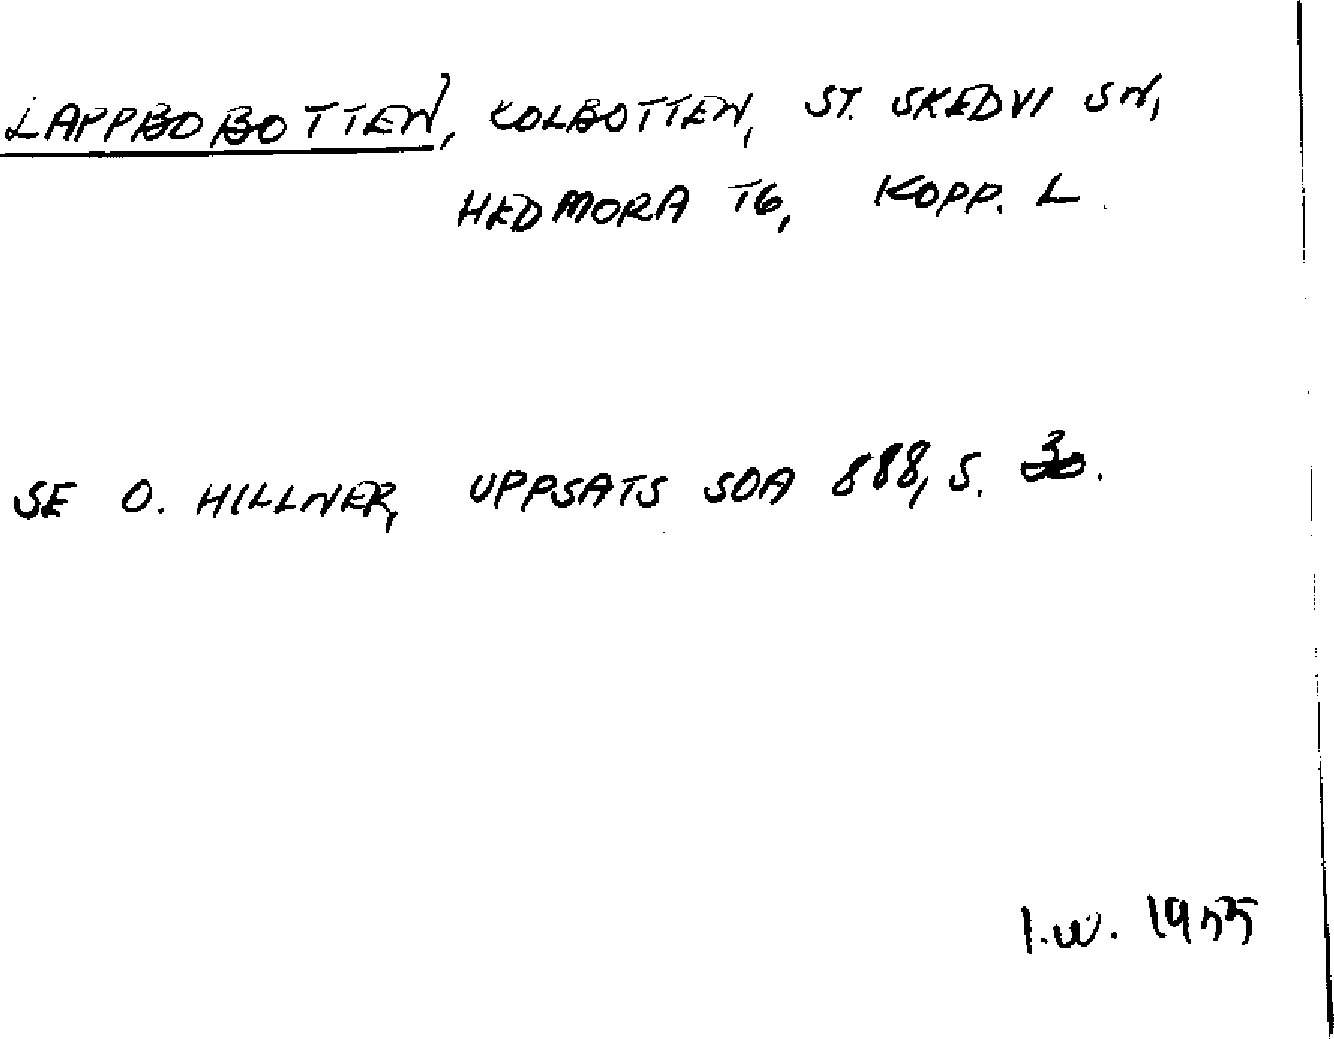 LAPPBOBOTTEN, KOLBOTTEN, ST. SKEDVI SN,
HEDMORA TG, KOPP. L.
SE O. HILLNER, UPPSATS SOA 888, S. 30.
I.W. 1955